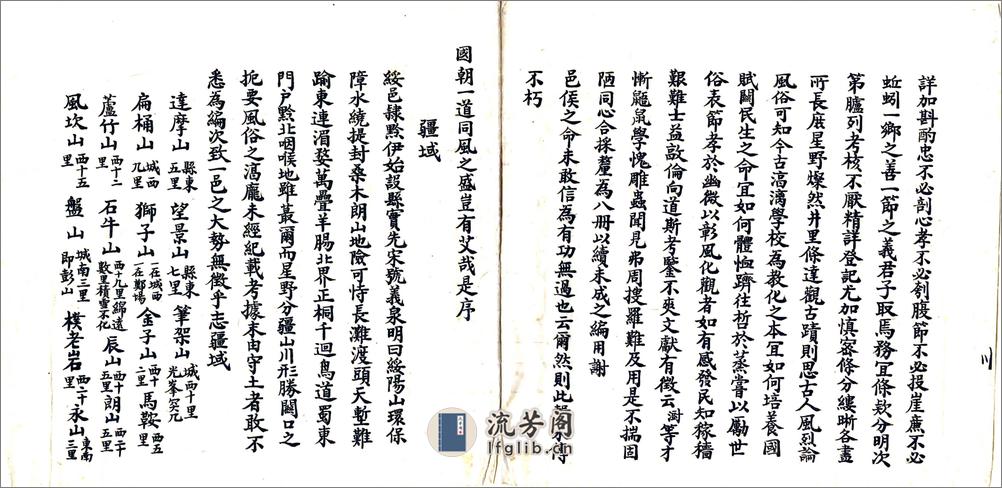 詳加斟酌忠不必剖心孝不必刳腹節不必投崖廉不必
蚯蚓一鄉之善一節之義君子取焉務宜條欵分明次
第臚列考核不厭精詳登記尤加慎審條分縷晰各盡
所長庶星野燦然井里條達觀古蹟則思古人風烈論
風俗可知今古澆漓學校為教化之本宜如何培養國
賦關民生之命宜如何體恤躋往哲於蒸嘗以勵世
俗表節孝於幽微以彰風化觀者如有感發民知稼穡
艱難士益敦倫向道斯考鑒不爽文獻有徵云澍等才
慚鼫鼠學愧雕蟲聞見弗周搜羅難及用是不揣固
陋同心合採釐為八冊以續未成之編用謝
邑侯之命未敢信為有功無過也云爾然則此
不朽
國朝一道同風之盛豈有艾哉是序
疆域
綏邑隸黔伊始設縣實先宋號義泉明曰綏陽山環保
障水繞提封桑木朗山地險可恃長灘渡頭天塹難
踰東連湄婺萬疊羊腸北界正桐千迴鳥道蜀東
門户黔北咽喉地雖蕞爾而星野分疆山川形勝關口之
扼要風俗之澆龐未經紀載考據末由守土者敢不
悉為編次致一邑之大勢無徵乎志疆域
達摩山 縣東五里 望景山 縣東七里 筆架山 城西十里光峯突兀
扁桶山 城西九里 獅子山 一在城西一在鄭場 金子山 西十二里 馬鞍 西五里
蘆竹山 西十二里 石牛山 西十九里綿遠數里積雪不化 辰山 西十五里 朗山 西六十里
風坎山 西十五里 盤山 城南三里即彭山 樸老岩 西二十里 永山 東南三里
川
流芳阁
lfglib.cn